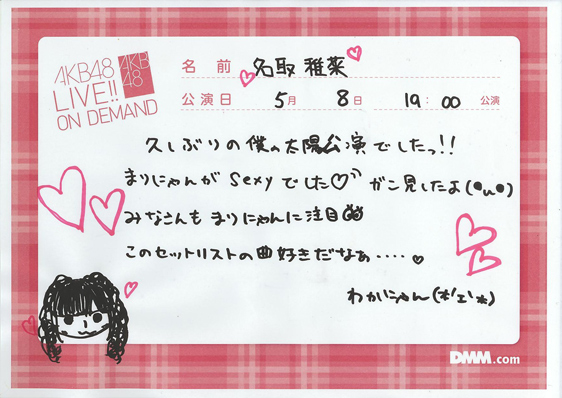 AKB48
LIVE!!
ON DEMAND
AKB
48
名前 名取稚菜
公演日 5月 8日 19:00 公演
久しぶりの僕の太陽公演でしたっ!!
まりにゃんがsexyでした♡ ガン見したよ(●u●)
みなさんも まりにゃんに注目
このセットリストの曲好きだなぁ....♥
わかにゃん(*'ェ'*)
DMM.com